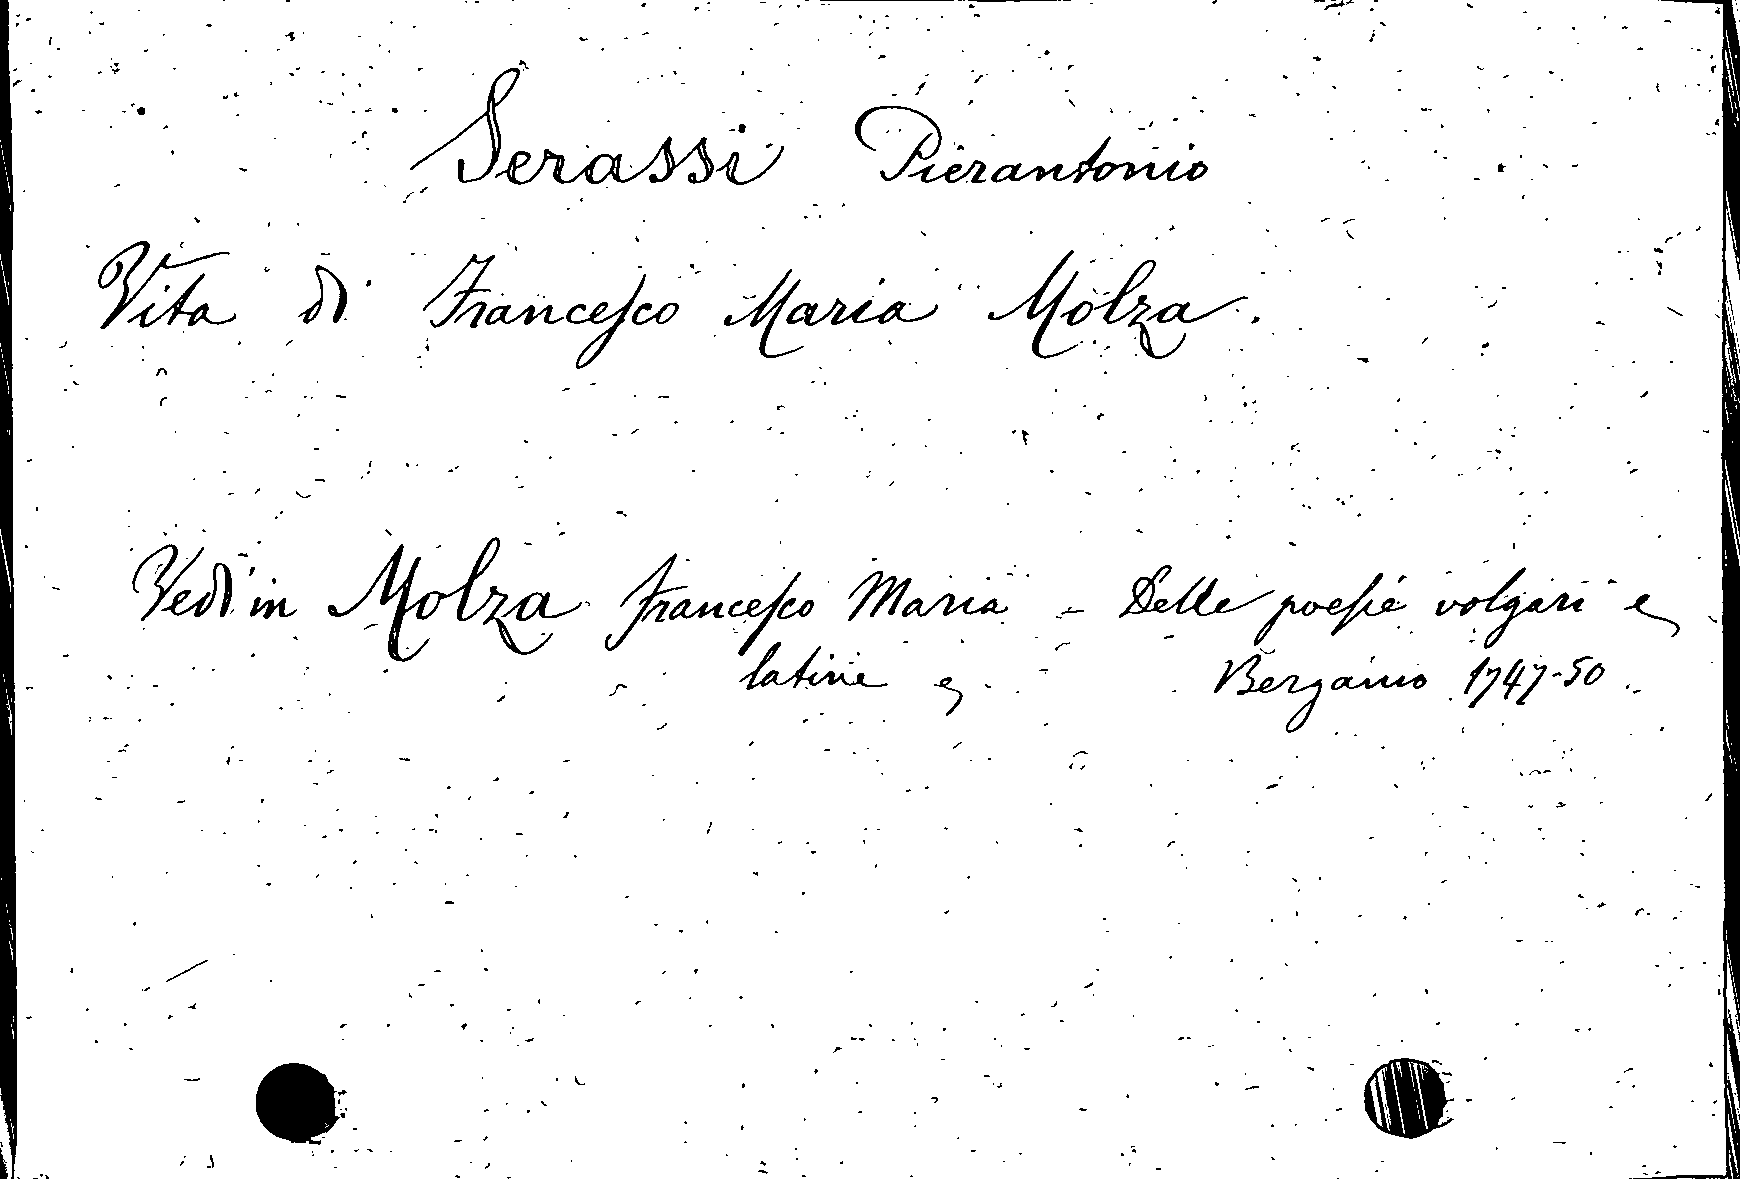 Serassi Pierantonio
Vita di Francesco Maria Molza.
Vedi in Molza Francesco Maria - Delle poesie volgari e
latine e Bergamo 1747-50.